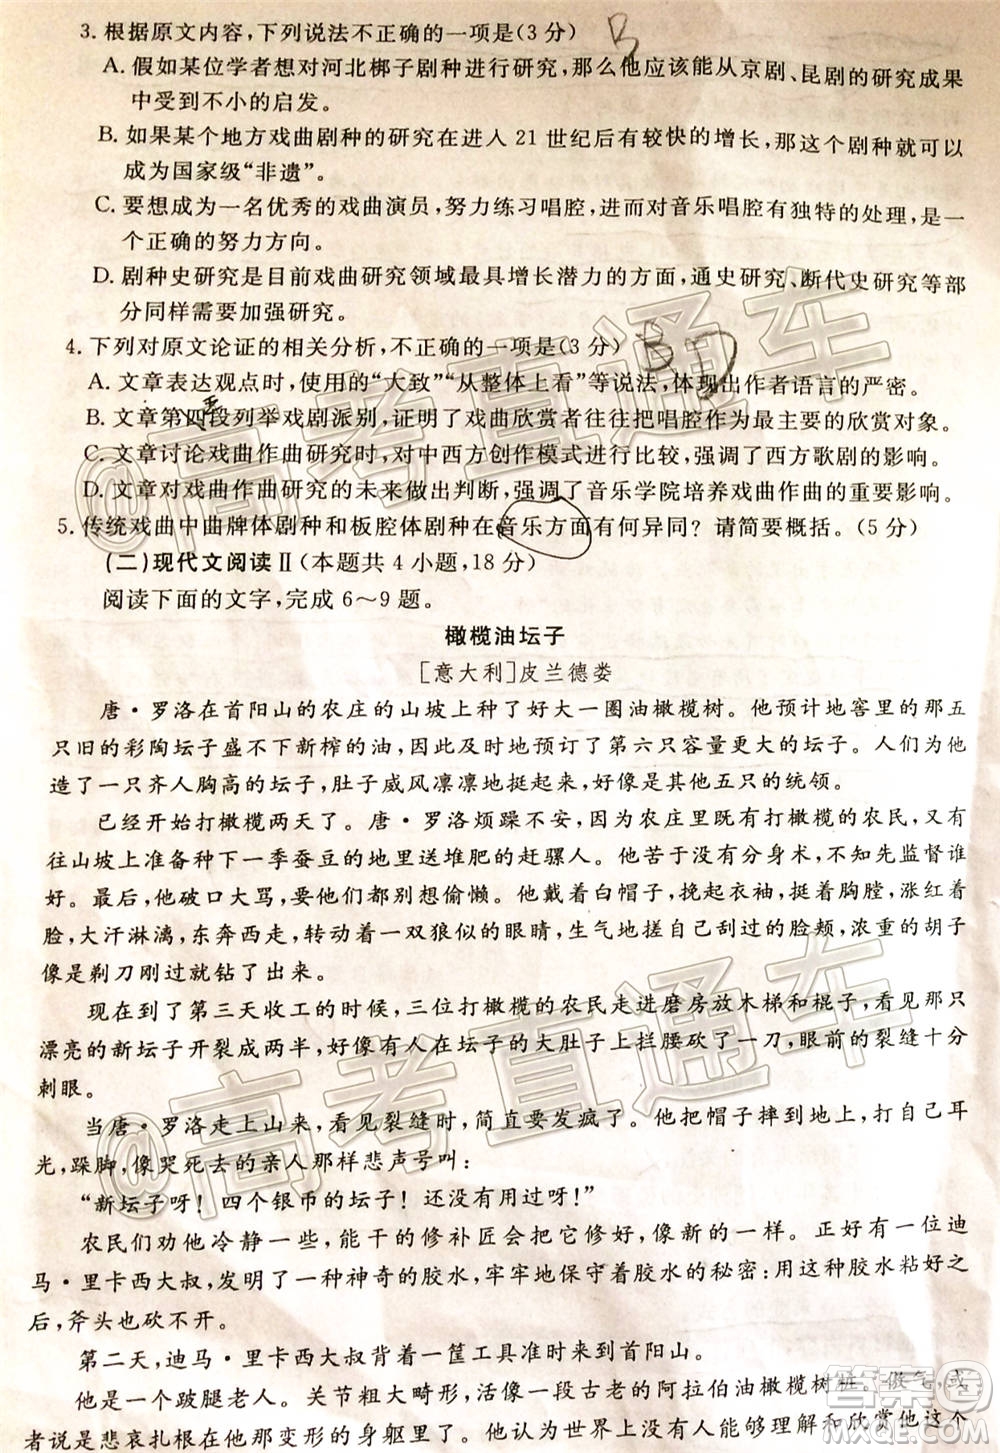 3. 根据原文内容,下列说法不正确的一项是(3分) B
A. 假如某位学者想对河北梆子剧种进行研究,那么他应该能从京剧、昆剧的研究成果
中受到不小的启发。
B. 如果某个地方戏曲剧种的研究在进入 21 世纪后有较快的增长,那这个剧种就可以
成为国家级“非遗”。
C. 要想成为一名优秀的戏曲演员,努力练习唱腔,进而对音乐唱腔有独特的处理,是一
个正确的努力方向。
D. 剧种史研究是目前戏曲研究领域最具增长潜力的方面,通史研究、断代史研究等部
分同样需要加强研究。
4. 下列对原文论证的相关分析,不正确的一项是(3分) B D
A. 文章表达观点时,使用的“大致”“从整体上看”等说法,体现出作者语言的严密。
B. 文章第四段列举戏剧派别,证明了戏曲欣赏者往往把唱腔作为最主要的欣赏对象。
C. 文章讨论戏曲创作研究时,对中西方创作模式进行比较,强调了西方歌剧的影响。
D. 文章对戏曲作曲研究的未来做出判断,强调了音乐学院培养戏曲作曲的重要影响。
5. 传统戏曲中曲牌体剧种和板腔体剧种在音乐方面有何异同?请简要概括。(5分)
(二)现代文阅读Ⅱ(本题共4小题,18分)
阅读下面的文字,完成6～9题。
橄榄油坛子
[意大利]皮兰德娄
唐·罗洛在首阳山的农庄的山坡上种了好大一圈油橄榄树。他预计地窖里的那五
只旧的彩陶坛子盛不下新榨的油,因此及时地预订了第六只容量更大的坛子。人们为他
造了一只齐人胸高的坛子,肚子威风凛凛地挺起来,好像是其他五只的统领。
已经开始打橄榄两天了。唐·罗洛烦躁不安,因为农庄里有打橄榄的农民,又有
往山坡上准备种下一季蚕豆的地里送堆肥的赶骡人。他苦于没有分身术,不知先监督谁
好。因此,他破口大骂,他们都别想偷懒。他戴着白帽子,挽起衣袖,挺着胸膛,涨红着
脸,大汗淋漓,东奔西走,转动着一双狼似的眼睛,生气地搓着自己刮过的脸颊,浓重的胡子
像是剃刀刚过就钻了出来。
现在到了第三天收工的时候,三位打橄榄的农民走进磨房放木梯和棍子,看见那只
漂亮的新坛子开裂成两半,好像有人在坛子的大肚子上拦腰砍了一刀,眼前的裂缝非常
刺眼。
当唐·罗洛走上山来,看见裂缝时,简直要发疯了。他把帽子摔到地上,打自己耳
光,跺脚,像哭死去的亲人那样悲声号叫:
“新坛子呀!四个银币的坛子!还没有用过呀!”
农民们劝他冷静一些,能干的修补匠会把它修好,像新的一样。正好有一位迪
马·里卡西大叔,发明了一种神奇的胶水,牢牢地保守着胶水的秘密:用这种胶水粘好之
后,斧头也砍不开。
第二天,迪马·里卡西大叔背着一筐工具准时来到首阳山。
他是一个跛腿老人。关节粗大畸形,活像一段古老的阿拉伯油橄榄树桩。傲气,或
者说是悲哀扎根在他的变形的身躯里了。他认为世界上没有人能够理解和欣赏他这个
@高考直通车
@高考直通车
答案圈
MXQE.COM